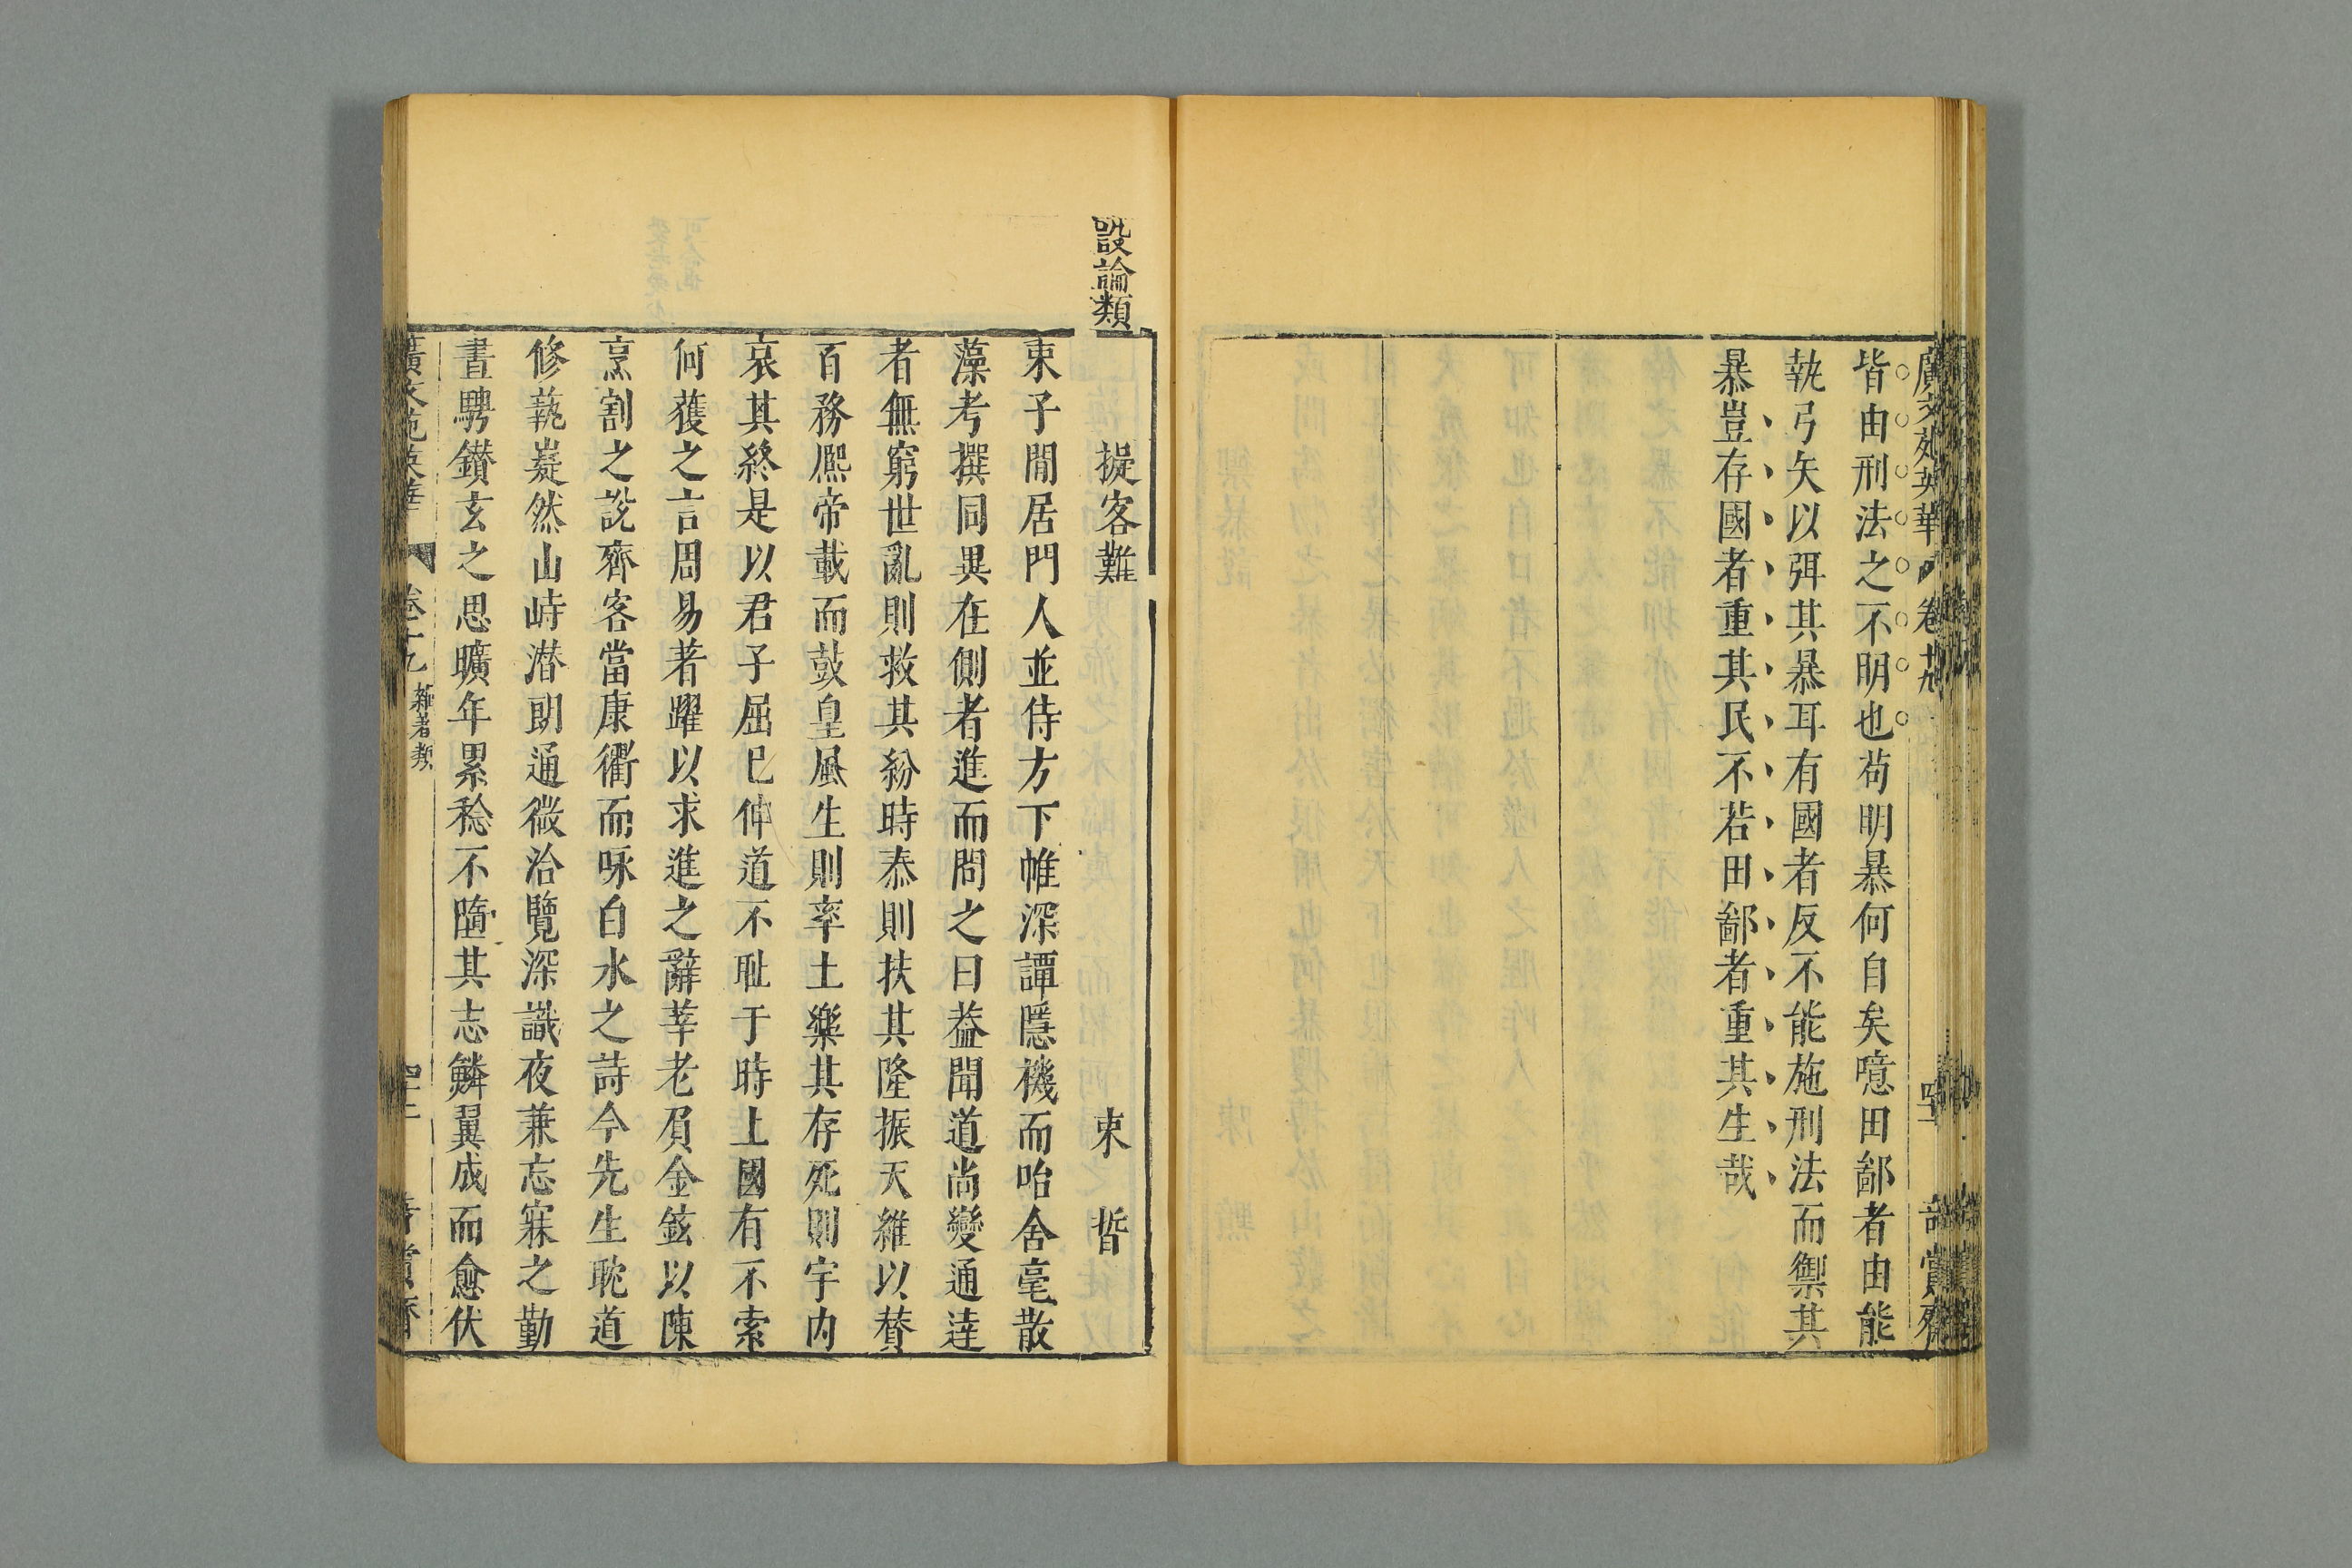 廣文苑英華 卷十九 四十一 詩賞齋
皆由刑法之不明也苟明暴何自矣噫田鄙者由能
執弓矢以弭其暴耳有國者反不能施刑法而禦其
暴豈存國者重其民不若田鄙者重其生哉
設論類
擬客難 束晳
束子閒居門人並侍方下帷深譚隱機而咍舍毫散
藻考撰同異在側者進而問之曰葢聞道尚變通達
者無窮世亂則救其紛時泰則扶其隆振天維以賛
百務熈帝載而鼓皇風生則率土樂其存死則宇内
哀其終是以君子屈巳伸道不耻于時上國有不索
何蒦之言周易著躍以求進之辭莘老負金鉉以陳
烹割之說齊客當康衢而咏白水之詩今先生耽道
修蓺嶷然山峙潜朗通微洽覽深識夜兼忘寐之勤
晝騁鑚玄之思曠年累稔不隨其志鱗翼成而愈伏
廣文苑英華 卷十九 雜著類